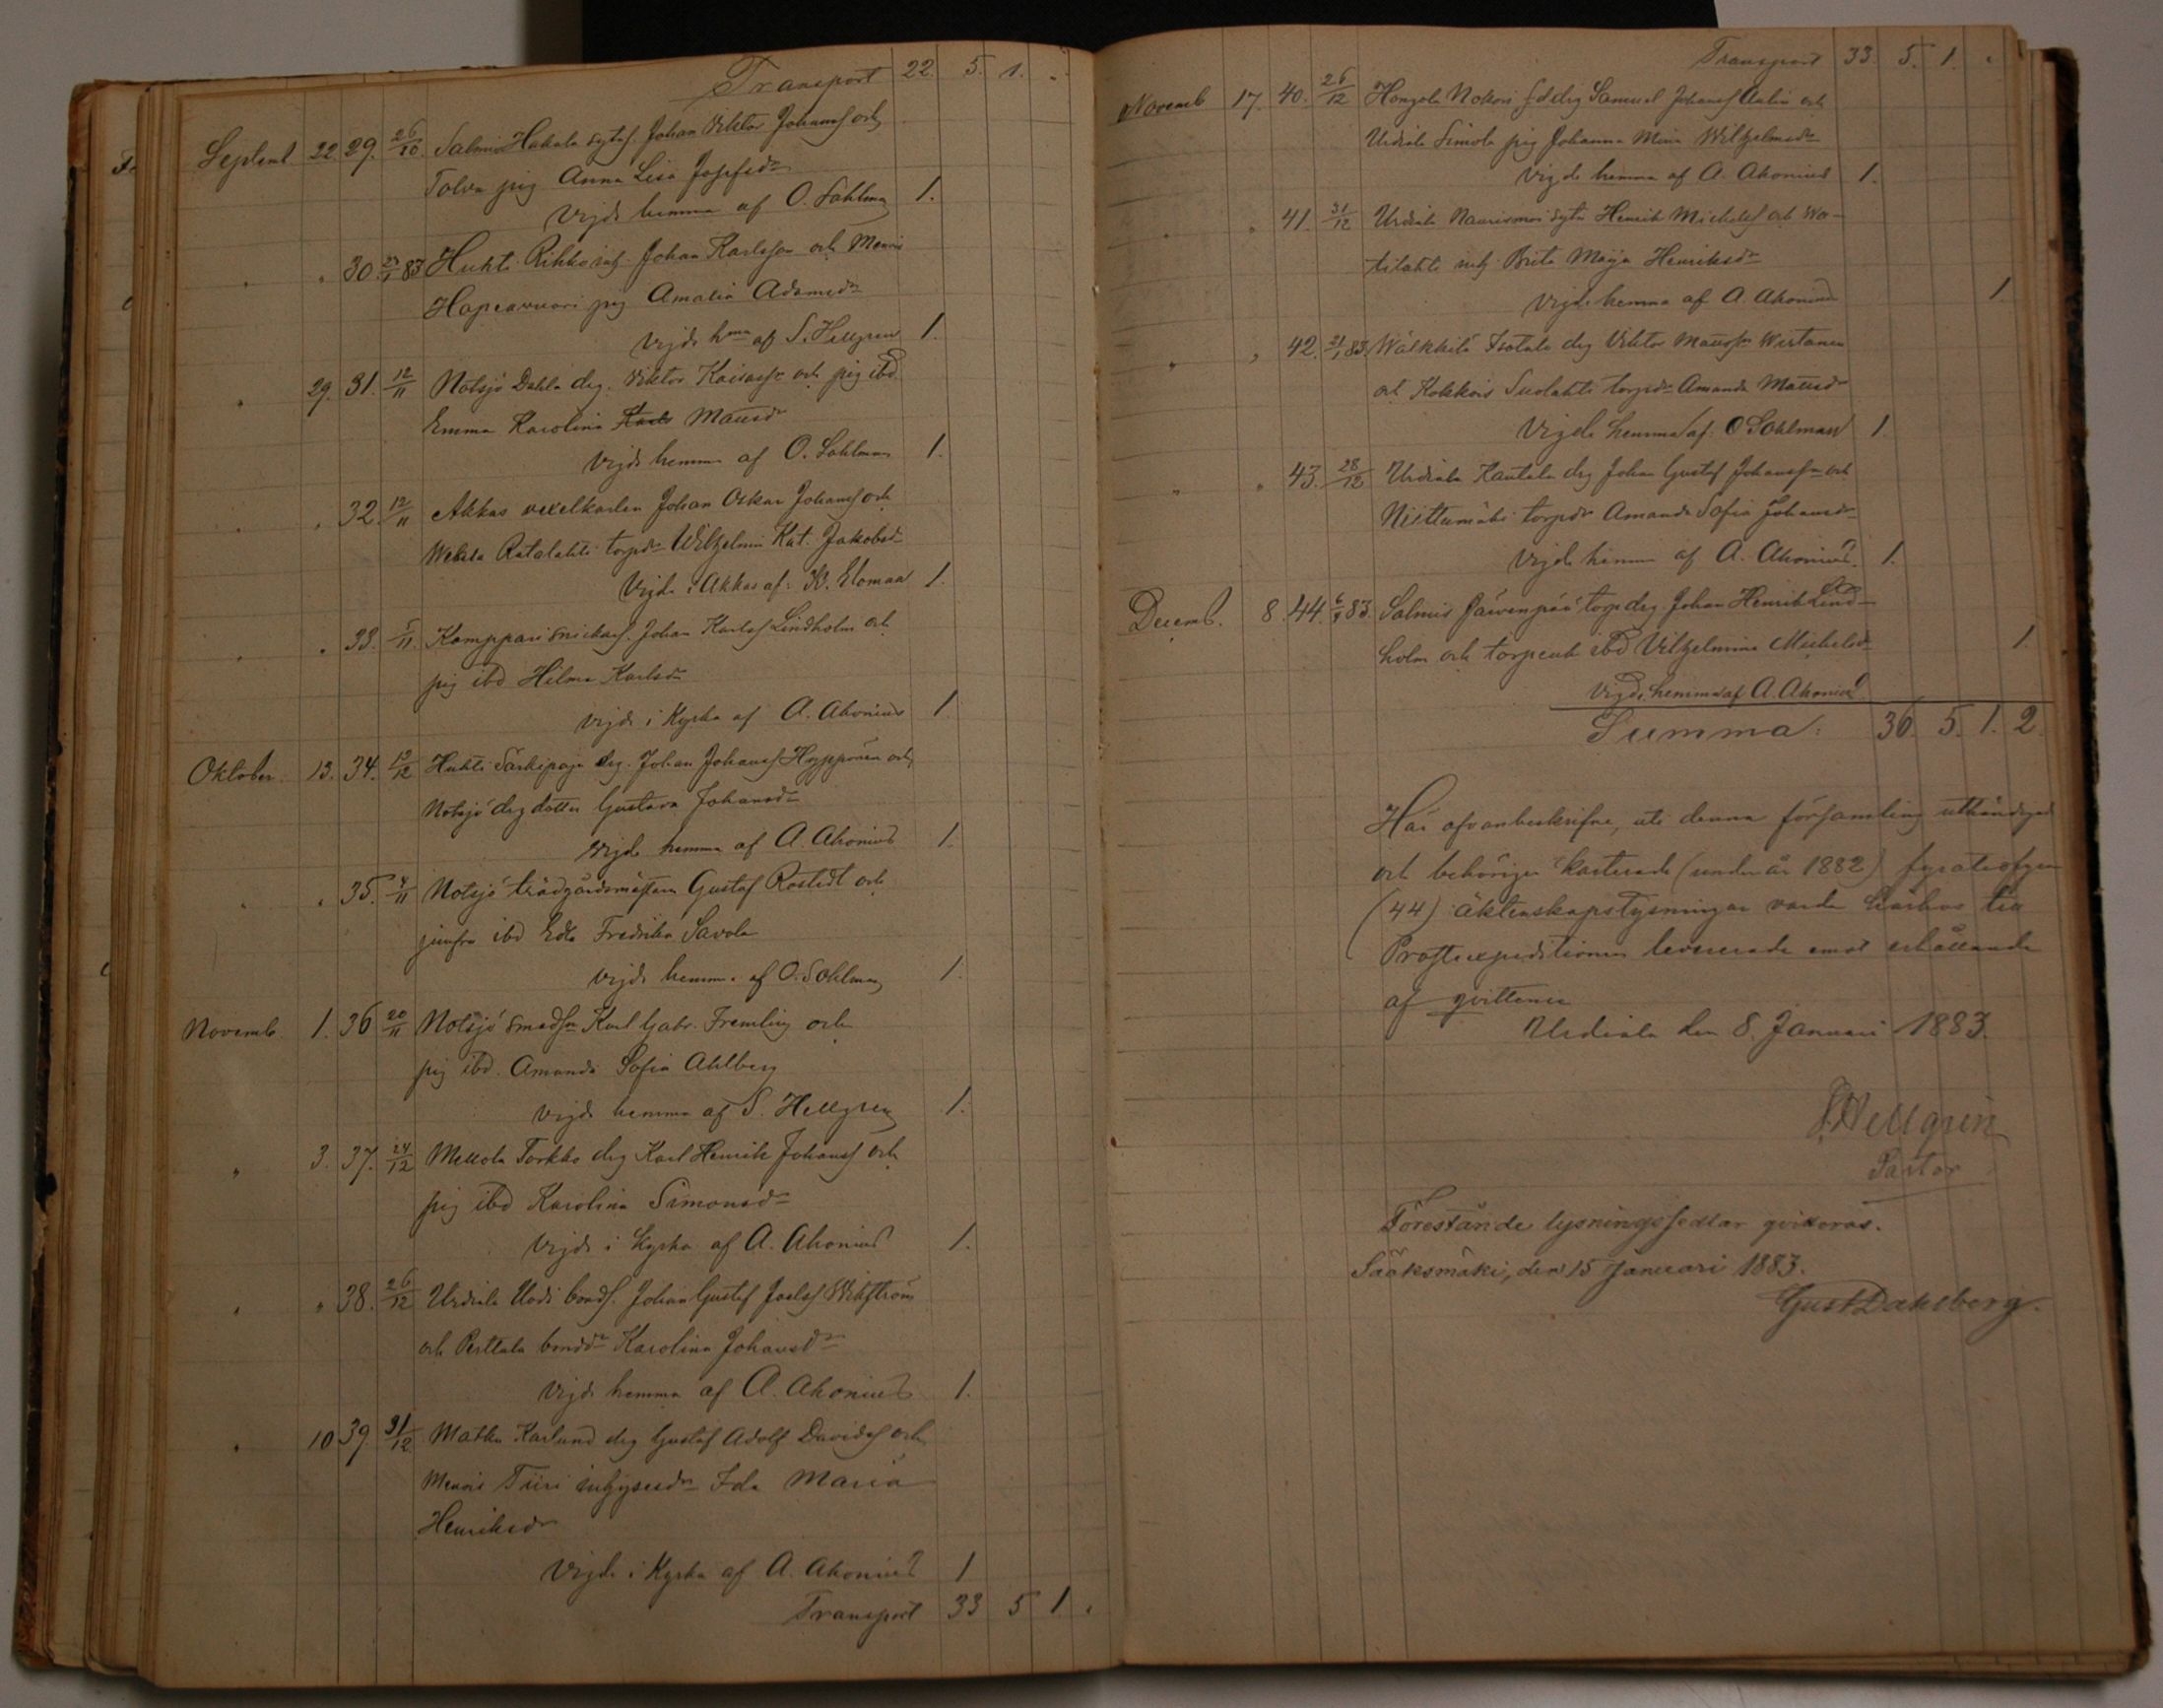 Transport 22. 5. 1. .
Septemb 22. 29. 26/10. Salmis Hakala sytn̄g. Johan Viktor Johansss och
Tolva pig Anna Lisa Josefsdr
Vigde hemma af O. Sahlman 1.
" " 30. 23/1 83 Huhti Rikko inh. Johan Karlsson och Menois
Hapeavuori pig Amalia Adamsdr
Vigde hma af S. Hellgren 1.
" 29. 31. 12/11 Notsjö Dahla drg. Viktor och pig ibd.
Emma Karolina Matsdr
Vigde hemma af O. Sahlman 1.
" " 32. 12/11 Akkas vexelkarlen Johan Oskar Johanss och
Ratalahti torpdr Wilhelmin Kat. Jakobsdr
Vigde i Akkas af: K. Elomaa 1.
" " 33. 5/11. Kamppari snickars. Johan Karlss Lindholm och
pig ibd Hilma Karlsdr
Vigde i Kyrka af A. Ahonius 1
Oktober. 13. 34. 12/12 Huhti Särkipaja drg. Johan Johanss Hypponen och
Notsjö drg dotter Gustava Johansdr
Vigde hemma af A. Ahonius 1.
" " 35. 4/11 Notsjö trädgårdsmästarn Gustaf Rostedt och
jumfru ibd Edla Fredrika Savola
Vigde hemma af O. Sahlman 1.
Novemb. 1. 36 20/11 Notsjö smedsn Karl Gabr. Fremling och
pig ibd. Amanda Sofia Ahlberg
Vigde hemma af S. Hellgren 1.
" 3. 37. 24/12 Mellola Torkko drg Karl Henrik Johanss och
pig ibd Karolina Simonsdr
Vigde i Kyrka af A. Ahonius 1.
" " 38. 26/12 Urdiala Uodi bonds. Johan Gustaf Joelss Wikström
och Perttala bondr Karolina Johansdr
Vigde hemma af A. Ahonius 1.
" 10 39 31/12 Matku Karlund drg Gustaf Adolf Davidss och
Menois Tiiri inhysesdr Ida Maria
Henriksdr
Vigde i Kyrka af A. Ahonius 1
Transport 33 5 1 .
Transport 33. 5. 1. .
Novemb 17. 40. 26/12 Hongola Nokori Samuel Johanss Aalin och
Urdiala Simola pig Johanna Mina Wilhelmsdr
Vigde hemma af A. Ahonius 1.
" " 41. 31/12 Urdiala Naurismäi Henrik Michelss och Wa-
titahti inh Brita Maija Henriksdr
Vigde hemma af A. Ahonius 1
" " 42. 21/1 83. Wälkkilä Isotalo drg Viktor Matsssn Wirtanen
och Kokkois Suolahti torpdr Amanda Matsdr
Vigde hemma af: O Sahlman 1
" " 43. 28/12 Urdiala Kantala drg Johan Gustaf Johansson och
Niittumäki torpdr Amanda Sofia Johansdr
Vigde hemma af A. Ahonius. 1.
Decemb. 8. 44. 6/1 83. Salmis Järvenpää torp drg Johan Henrik Lind-
holm och torpenk ibd Vilhelmina Michelsdr 1.
Vigde hemma af A. Ahonius
Summa: 36. 5. 1. 2.
Här ofvanbeskrifne, uti denna församling uthändigade
och behörigen karterade (under år 1882) fyratiofyra
(44) äktenskapslysningar varda härhos till
Prostexpeditionen levererade emot erhållande
af qvittence
Urdiala den 8. Januari 1883.
S. Hellgren
Pastor
Förestående lysningssedlar qvitteras.
Sääksmäki, den 15 Januari 1883.
Gust Dahlberg.